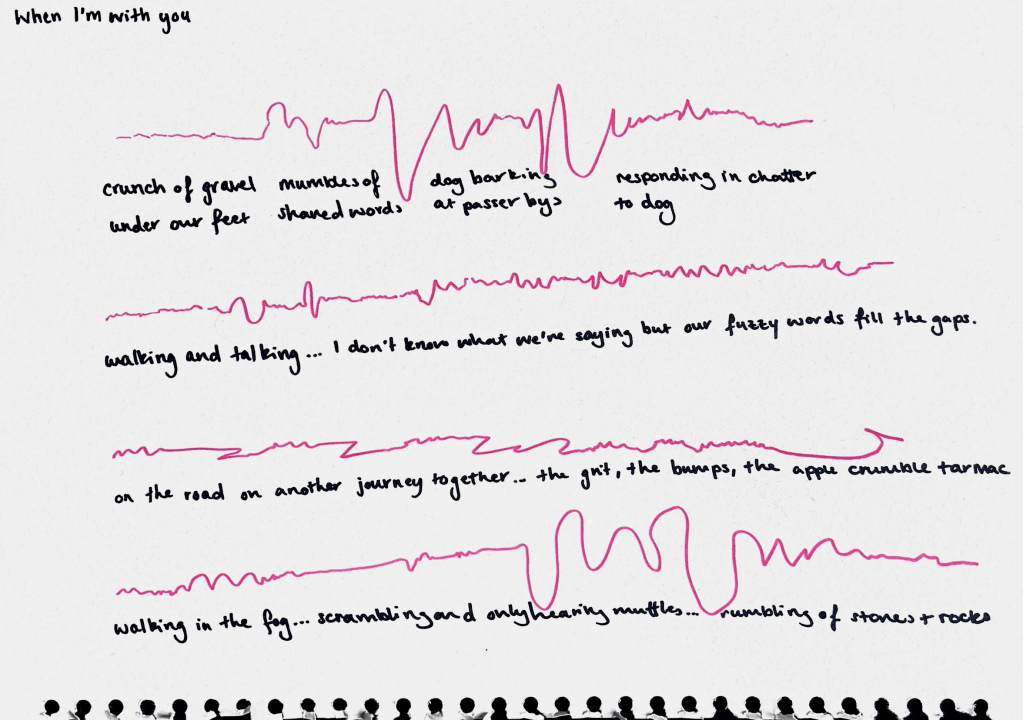 When I'm with you
crunch of gravel
under our feet
mumbles of
shared words
dog barking
at passer bys
responding in chatter
to dog
walking and talking... I don't know what we're saying but our fuzzy words fill the gaps.
on the road on another journey together... the grit, the bumps, the apple crumble tarmac
walking in the fog... scrambling and only hearing muffles... rumbling of stones + rocks